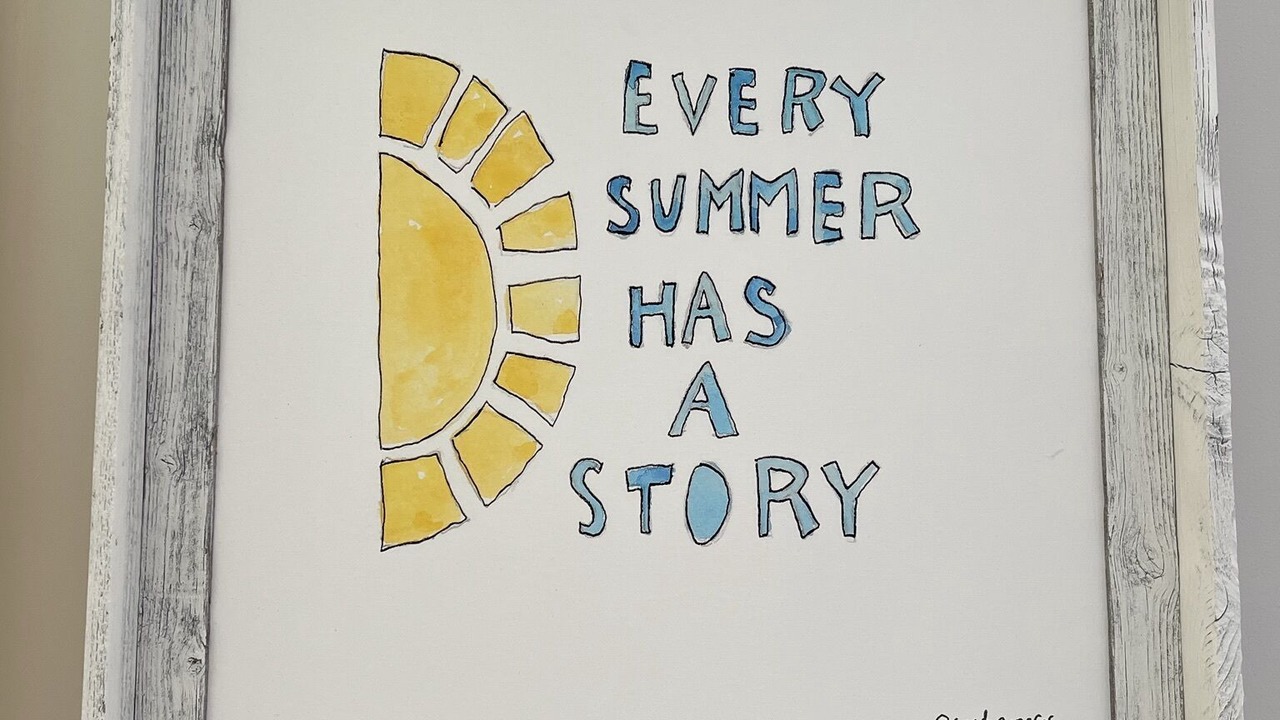 EVERY
SUMMER
HAS
A
STORY